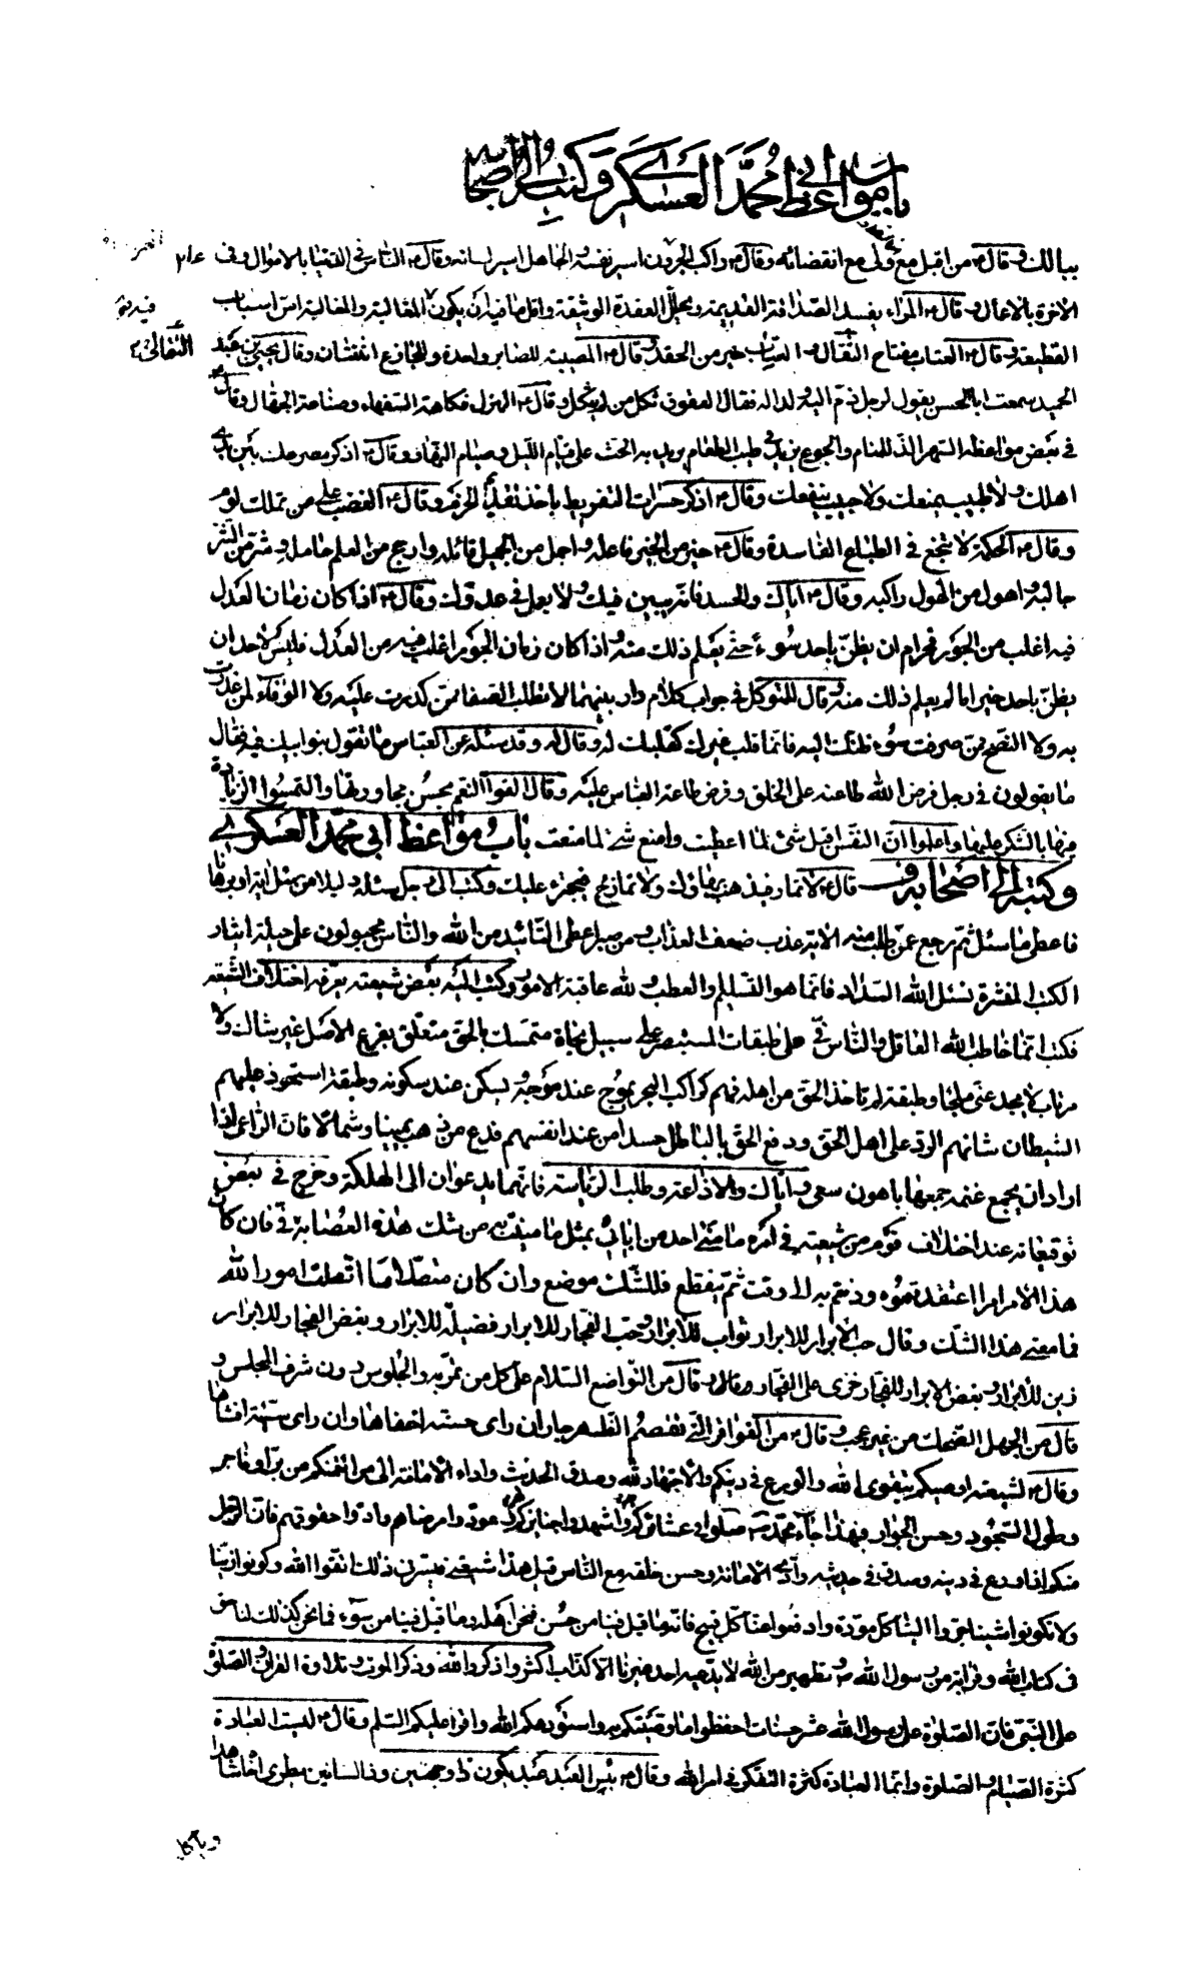 باب مواعظ ابي محمد العسكري وكتبه الى اصحابه
ببالك وقال ع من اقبل مع ولى مع انقضائه وقال ع راكب الحرون اسير نفسه والجاهل اسير لسانه وقال ع الناس في الدنيا بالاموال وفي
الاخرة بالاعمال وقال ع المراء يفسد الصداقة القديمة ويحلل العقدة الوثيقة واقل ما فيه ان يكون المغالبة والمغالبة اس اسباب
القطيعة وقال ع العتاب مفتاح الثقال والعتاب خير من الحقد وقال ع المصيبة للصابر واحدة وللجازع اثنتان وقال يحيى بن عبد
الحميد سمعت ابا الحسن يقول لرجل ذم اليه ولدا له فقال العقوق ثكل من لم يثكل وقال ع الهزل فكاهة السفهاء وصناعة الجهال وقال
في بعض مواعظه السهر الذ للمنام والجوع يزيد في طيب الطعام يريد به الحث على قيام الليل وصيام النهار وقال ع اذكر مصرعك بين يدي
اهلك ولا طبيب يمنعك ولا حبيب ينفعك وقال ع اذكر حسرات التفريط باخذ تقديم الحزم وقال ع الغضب على من تملك لوم
وقال ع الحكمة لا تنجع في الطباع الفاسدة وقال ع خير من الخير فاعله واجمل من الجميل قائله وارجح من العلم حامله وشر من الشر
جالبه واهول من الهول راكبه وقال ع اياك والحسد فانه يبين فيك ولا يعمل في عدوك وقال ع اذا كان زمان العدل
فيه اغلب من الجور فحرام ان يظن باحد سوء حتى يعلم ذلك منه واذا كان زمان الجور اغلب فيه من العدل فليس لاحد ان
يظن باحد خيرا ما لم يعلم ذلك منه وقال للمتوكل في جواب كلام دار بينهما لا تطلب الصفا ممن كدرت عليه ولا الوفاء لمن غدرت
به ولا النصح ممن صرفت سوء ظنك اليه فانما قلب غيرك كقلبك له وقال له وقد سئله عن العباس ما تقول بنو ابيك فيه فقال
ما يقولون في رجل فرض الله طاعته على الخلق وفرض طاعة العباس عليه وقال القوا النعم بحسن مجاورتها والتمسوا الزيادة
فيها بالشكر عليها واعلموا ان النفس اقبل شئ لما اعطيت وامنع شئ لما منعت باب مواعظ ابي محمد العسكري
وكتبه الى اصحابه ف قال ع لا تمار فيذهب بهاؤك ولا تمازح فيجترء عليك وكتب الى رجل سئله دليلا من سئل اية او برهانا
فاعطي ما سئل ثم رجع عمن طلب منه الاية عذب ضعف العذاب ومن صبر اعطي التائيد من الله والناس مجبولون على حيلة ايثار
الكتب المنشرة نسئل الله السداد فانما هو التسليم والعطب ولله عاقبة الامور وكتب اليه بعض شيعته يعرفه اختلاف الشيعة
فكتب انما خاطب الله العاقل والناس في على طبقات المستبصر على سبيل نجاة متمسك بالحق متعلق بفرع الاصل غير شاك ولا
مرتاب لا يجد عني ملجا وطبقة لم تاخذ الحق من اهله فهم كراكب البحر يموج عند موجه ويسكن عند سكونه وطبقة استحوذ عليهم
الشيطان شانهم الرد على اهل الحق ودفع الحق بالباطل حسدا من عند انفسهم فدع من ذهب يمينا وشمالا فان الراعي اذا
اراد ان يجمع غنمه جمعها باهون سعى واياك والاذاعة وطلب الرياسة فانهما يدعوان الى الهلكة وخرج في بعض
توقيعاته عند اختلاف قوم من شيعته في امره ما مني احد من ابائي بمثل ما منيت به من شك هذه العصابة في فان كان
هذا الامر امرا اعتقدتموه ودنتم به الى وقت ثم ينقطع فللشك موضع وان كان متصلا ما اتصلت امور الله
فما معنى هذا الشك وقال حب الابرار للابرار ثواب للابرار وحب الفجار للابرار فضيلة للابرار وبغض الفجار للابرار
زين للابرار وبغض الابرار للفجار خزى على الفجار وقال من التواضع السلام على كل من تمر به والجلوس دون شرف المجلس و
قال من الجهل الضحك من غير عجب وقال ع من الفواقر التي تقصم الظهر جار ان راى حسنة اخفاها وان راى سيئة افشاها
وقال ع لشيعته اوصيكم بتقوى الله والورع في دينكم والاجتهاد لله وصدق الحديث واداء الامانة الى من ائتمنكم من بر او فاجر
وطول السجود وحسن الجوار فبهذا جاء محمد ص صلوا في عشائركم واشهدوا جنائزكم وعودوا مرضاهم وادوا حقوقهم فان الرجل
منكم اذا ورع في دينه وصدق في حديثه وادى الامانة وحسن خلقه مع الناس قيل هذا شيعي فيسرني ذلك اتقوا الله وكونوا زينا
ولا تكونوا شينا جروا الينا كل مودة وادفعوا عنا كل قبيح فانه ما قيل فينا من حسن فنحن اهله وما قيل فينا من سوء فما نحن كذلك لنا حق
في كتاب الله وقرابة من رسول الله ص وتطهير من الله لا يدعيه احد غيرنا الا كذاب اكثروا ذكر الله وذكر الموت وتلاوة القران والصلوة
على النبي فان الصلوة على رسول الله عشر حسنات احفظوا ما وصيتكم به واستودعكم الله واقرا عليكم السلم وقال ع ليست العبادة
كثرة الصيام والصلوة وانما العبادة كثرة التفكر في امر الله وقال ع بئس العبد عبد يكون ذا وجهين وذا لسانين يطري اخاه شاهدا
وياكله